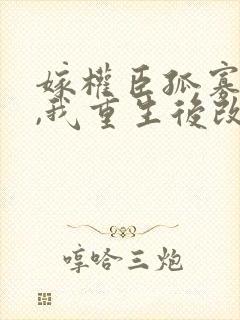 嫁權臣孤寡
,我重生後改
哼哈三炮